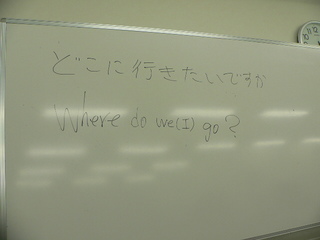 どこに行きたいですか
Where do we(I) go?